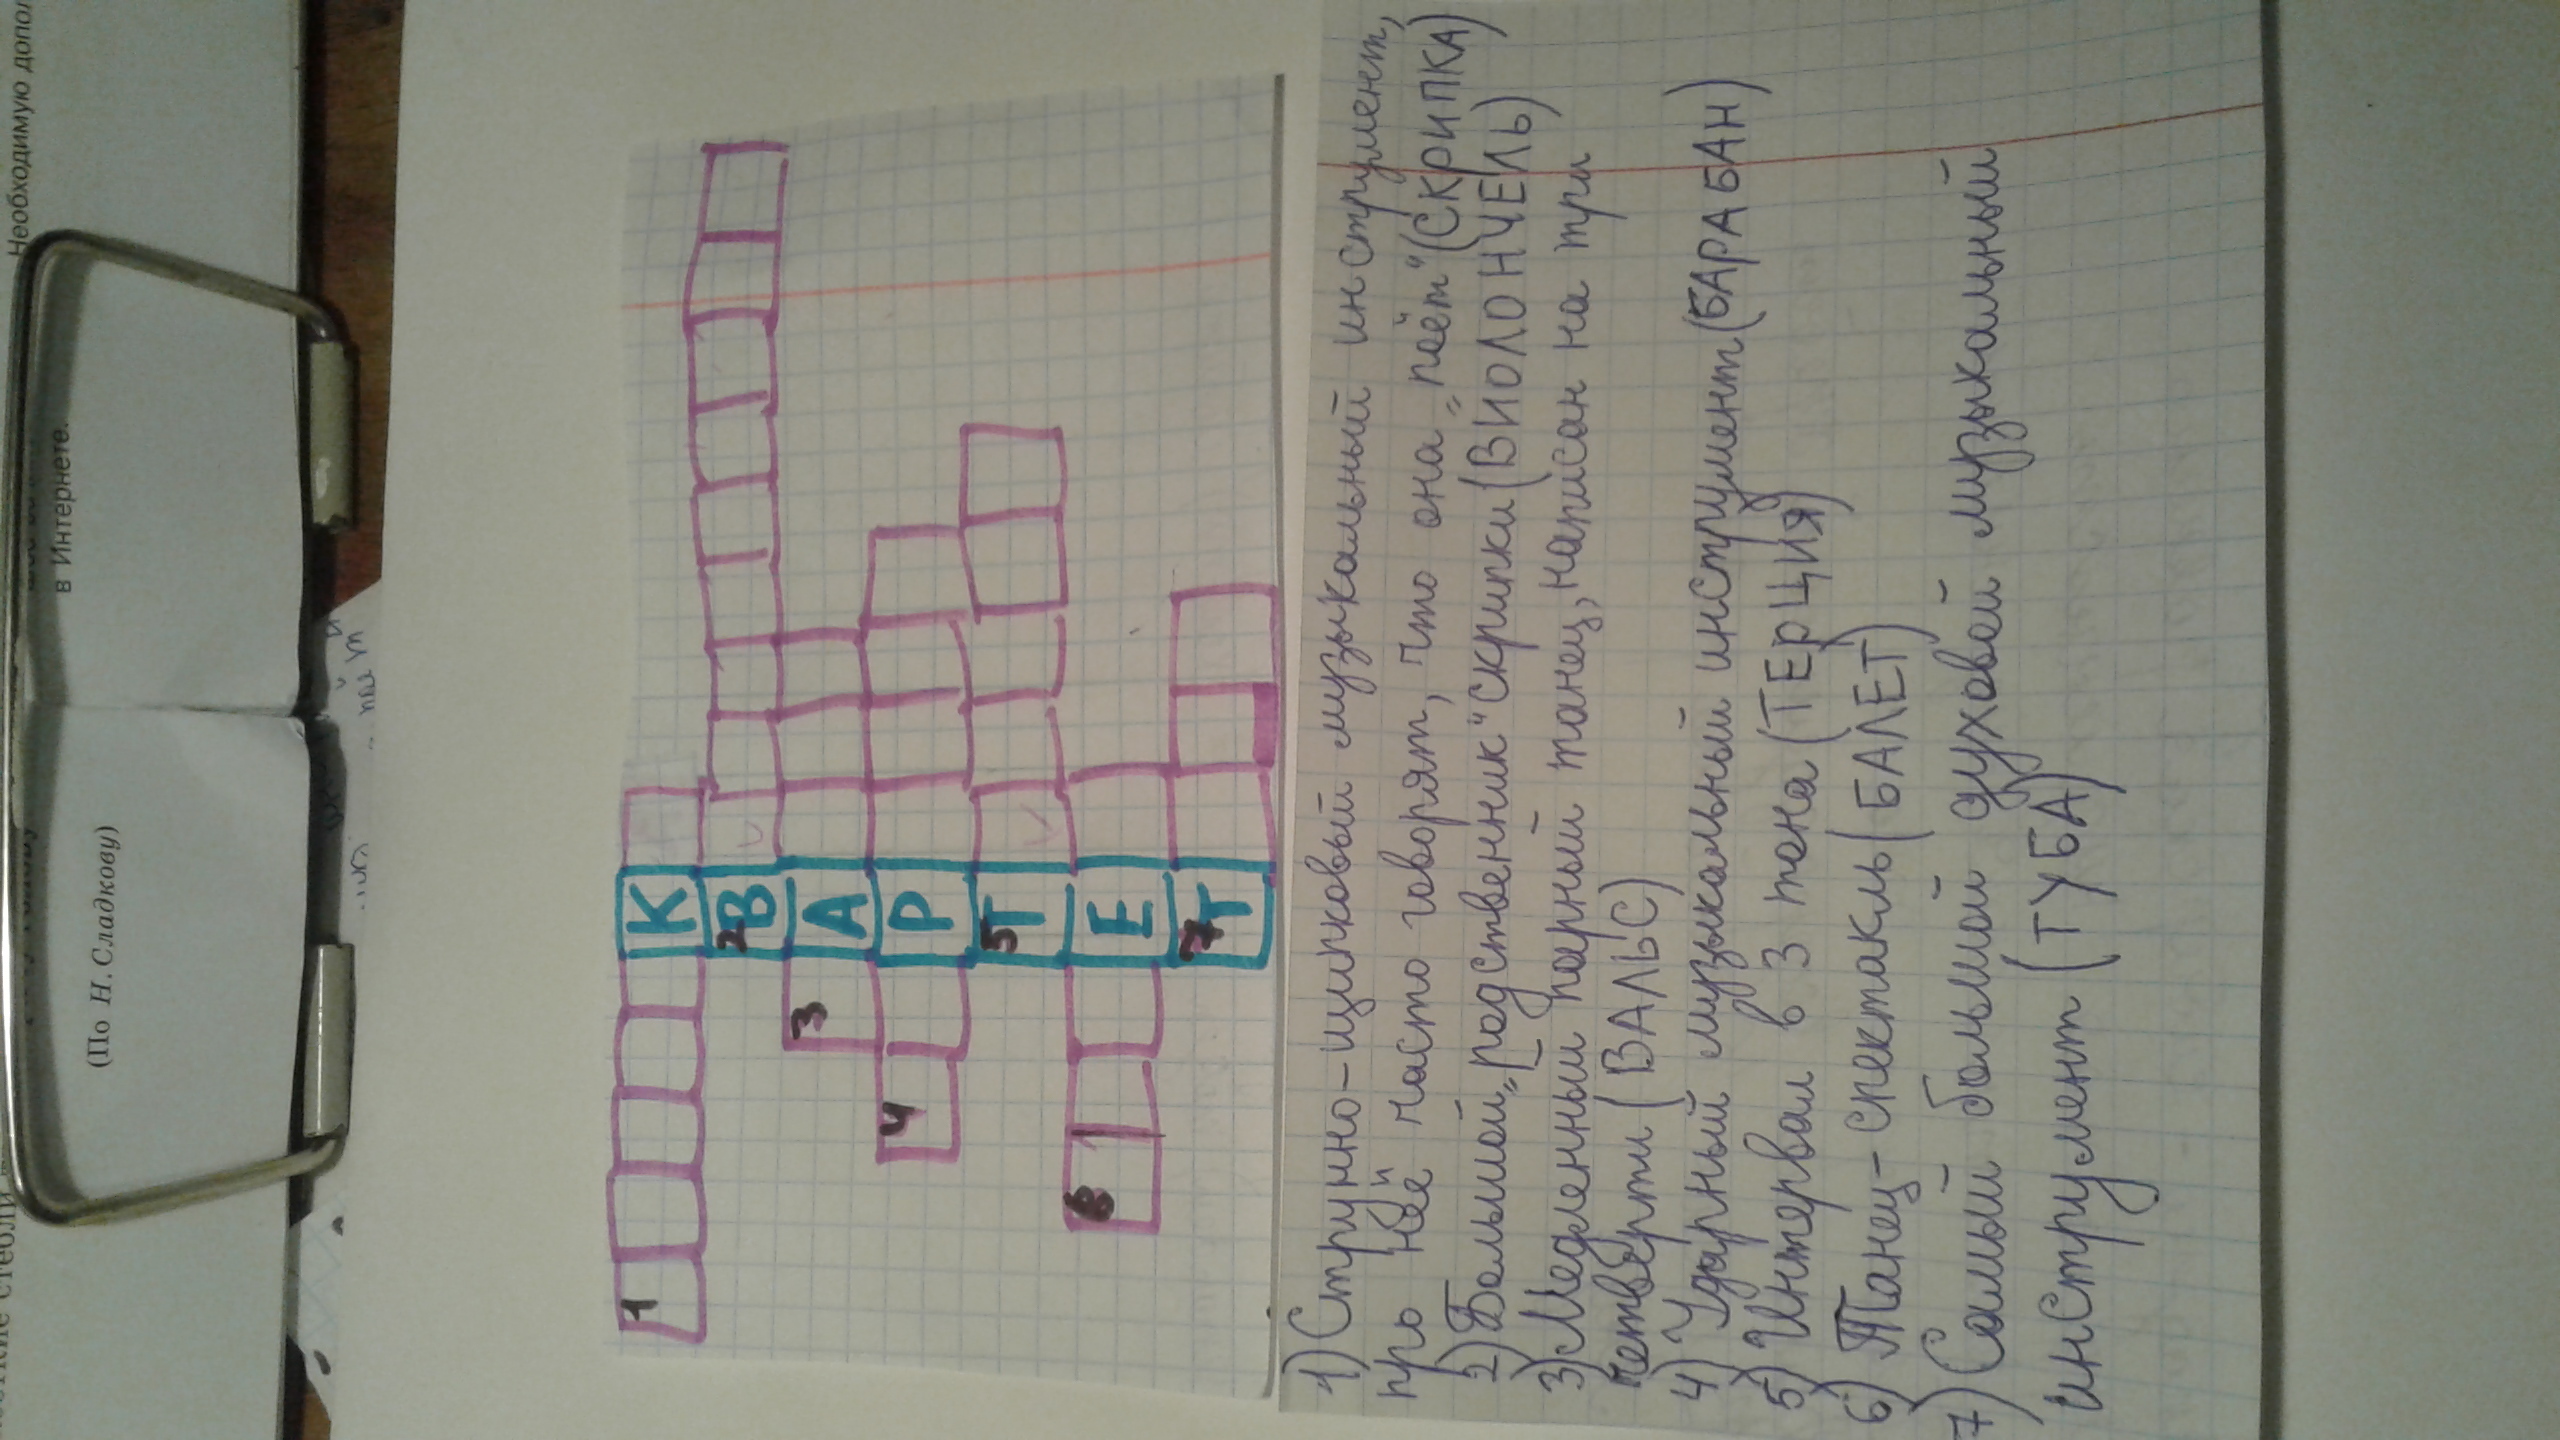 Необходимую
в Интернете.
(По Н. Сладкову)
1 К
2 В
3 А
4 Р
5 Т
6 Е
7 Т
1) Струнно-щипковый музыкальный инструмент,
про неё часто говорят, что она „поёт" (СКРИПКА)
2) Большой „родственник" скрипки (ВИОЛОНЧЕЛЬ)
3) Медленный парный танец, написан на три
четверти (ВАЛЬС)
4) Ударный музыкальный инструмент (БАРАБАН)
5) Интервал в 3 тона (ТЕРЦИЯ)
6) Танец-спектакль (БАЛЕТ)
7) Самый большой духовой музыкальный
инструмент (ТУБА)